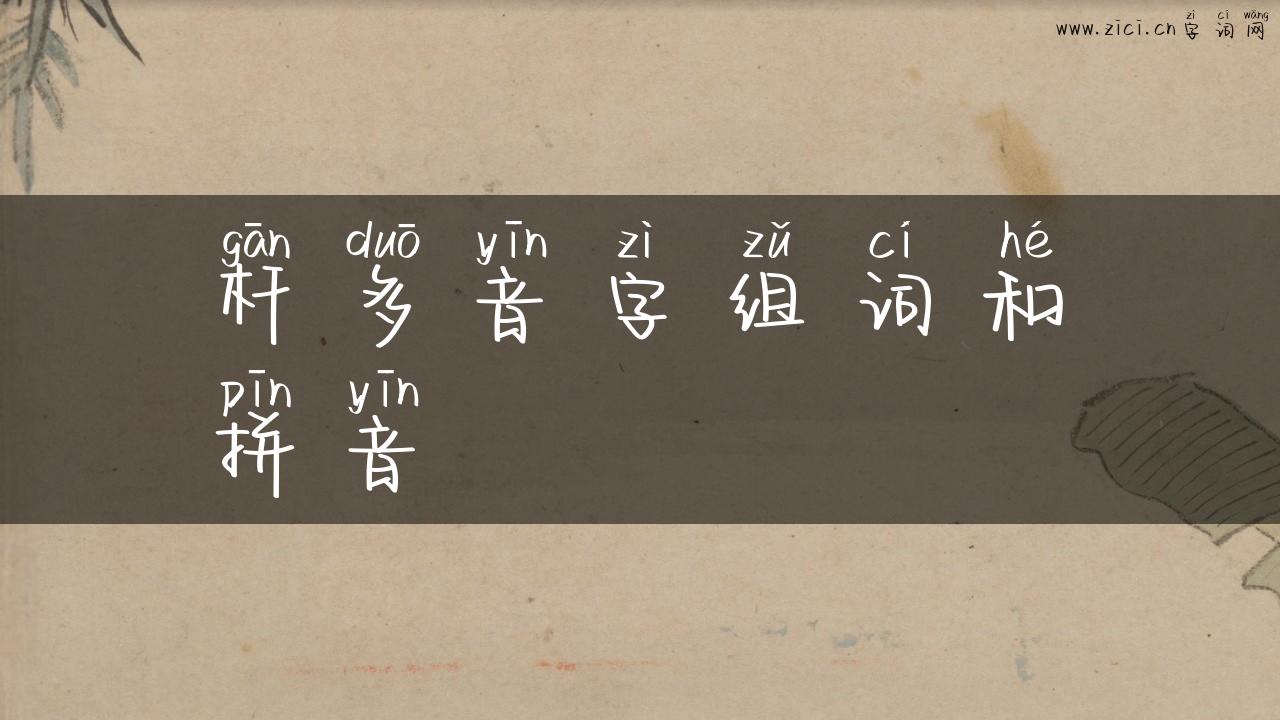 zì cí wǎng
www.zici.cn 字 词 网
gān duō yīn zì zǔ cí hé
杆 多 音 字 组 词 和
pīn yīn
拼 音